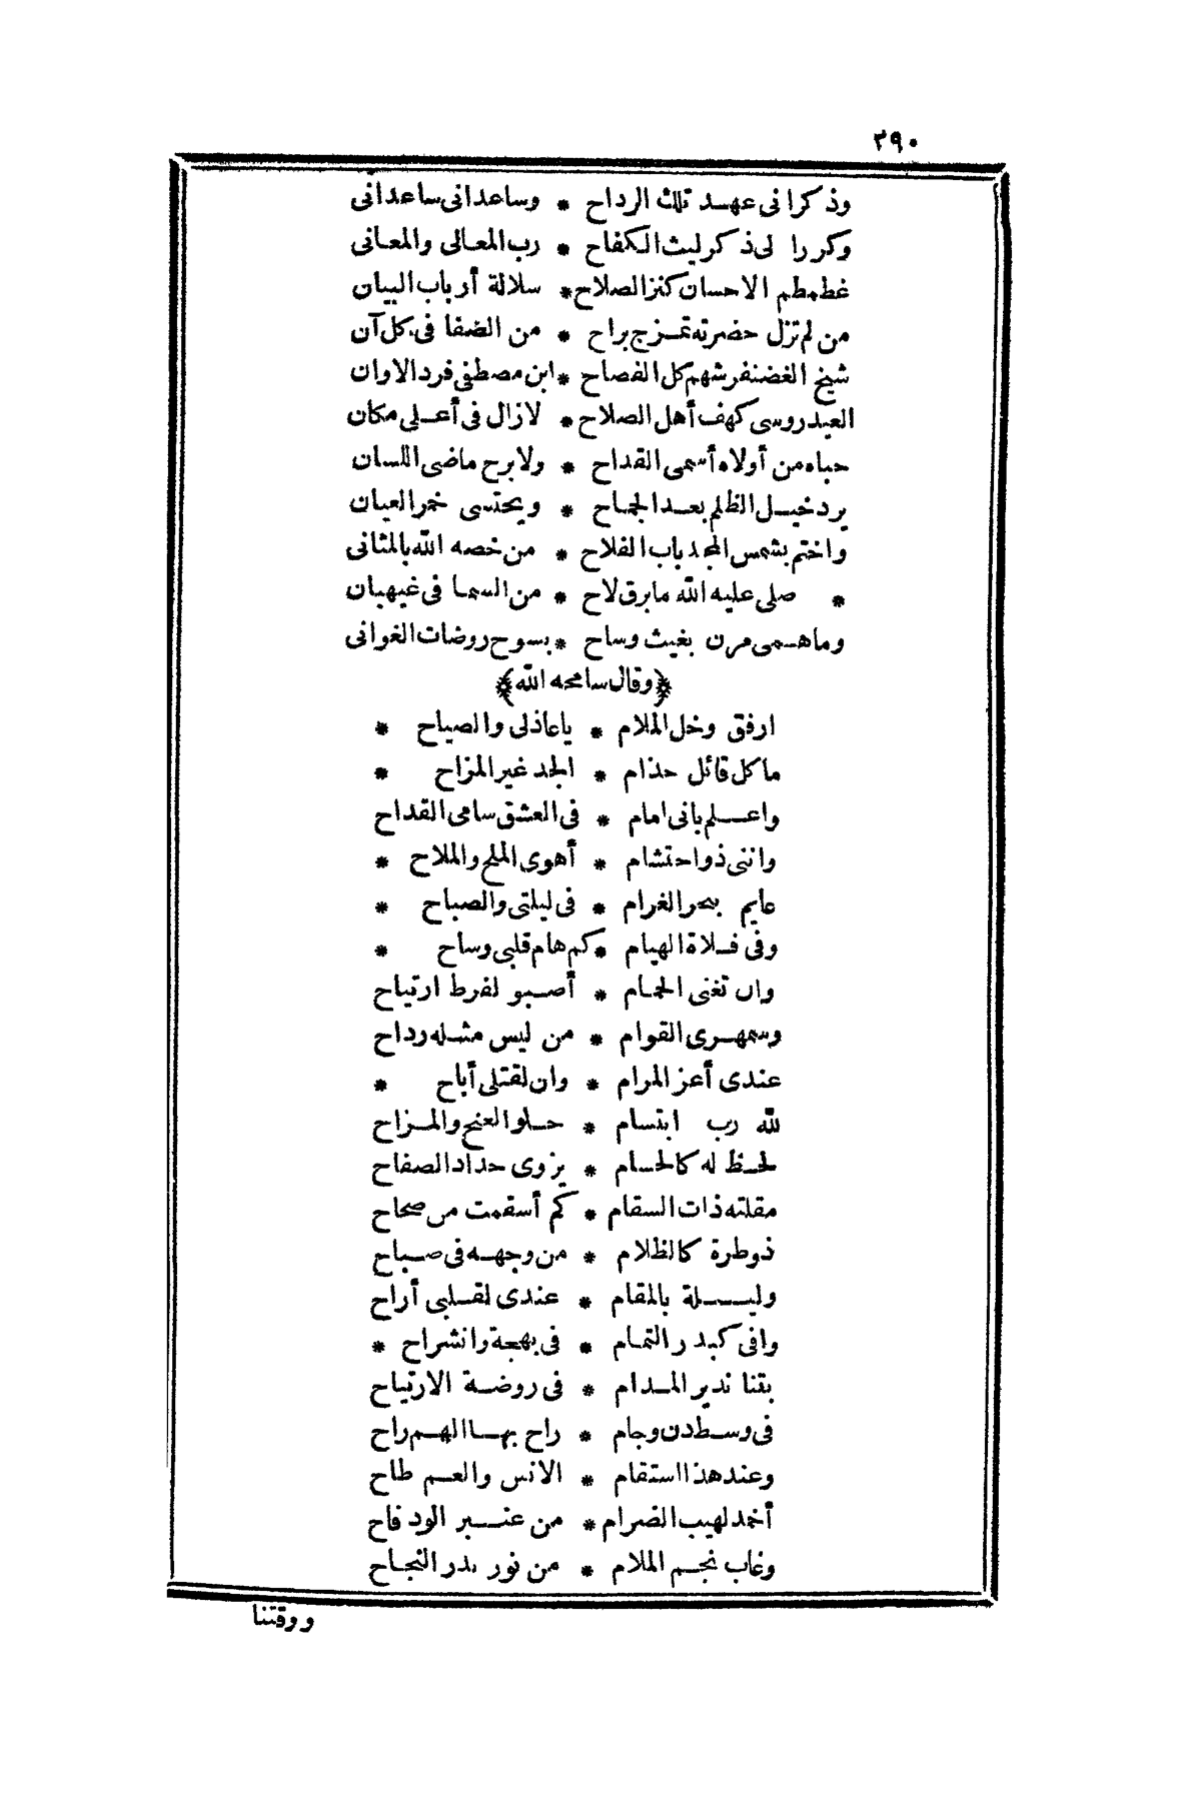 ٢٩٠
وذكرانى عهد تلك الرداح * وساعدانى ساعدانى
وكررا لى ذكر ليث الكفاح * رب المعالى والمعانى
غطمطم الاحسان كنز الصلاح * سلالة أرباب البيان
من لم تزل حضرته تمزج براح * من الصفا فى كل آن
شيخ الغضنفر شهم كل الفصاح * ابن مصطفى فرد الاوان
العيدروسى كهف أهل الصلاح * لازال فى أعلى مكان
حباه من أولاه أسمى القداح * ولا برح ماضى اللسان
يرد خيل الظلم بعد الجماح * ويحتسى خمر العيان
واختم بشمس المجد باب الفلاح * من خصه الله بالمثانى
* صلى عليه الله ما برق لاح * من السما فى غيهبان
وما همى مزن بغيث وساح * بسوح روضات الغوانى
﴿وقال سامحه الله﴾
ارفق وخل الملام * ياعاذلى والصياح *
ما كل قائل حذام * الجد غير المزاح *
واعلم بانى امام * فى العشق سامى القداح
واننى ذو احتشام * أهوى الملح والملاح *
عايم بحر الغرام * فى ليلتى والصباح *
وفى فلاة الهيام * كم هام قلبى وساح *
وان تغنى الحمام * أصبو لفرط ارتياح
وسمهرى القوام * من ليس مثله رداح
عندى أعز المرام * وان لقتلى أباح *
لله رب ابتسام * حلو الغنج والمزاح
لحظ له كالحسام * يزوى حداد الصفاح
مقلته ذات السقام * كم أسقمت من صحاح
ذو طرة كالظلام * من وجهه فى صباح
وليلة بالمقام * عندى لقلبى أراح
وافى كبدر التمام * فى بهجة وانشراح *
بتنا ندير المدام * فى روضة الارتياح
فى وسط دن وجام * راح بها الهم راح
وعند هذا استقام * الانس والغم طاح
أخمد لهيب الضرام * من عنبر الود فاح
وغاب نجم الملام * من نور بدر النجاح
ووقتنا